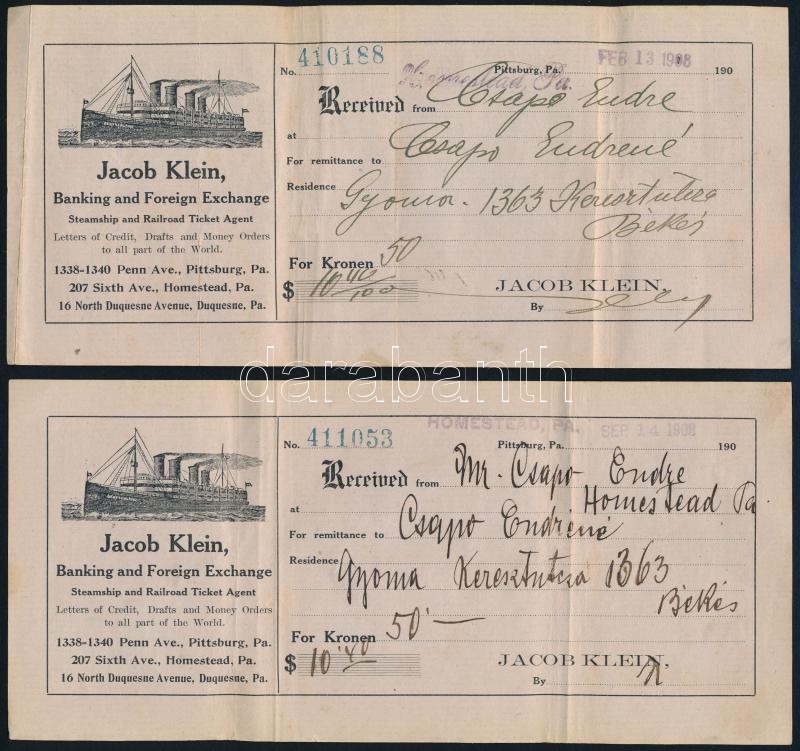 No. 410188
Pittsburg, Pa. FEB 13 1908 190
Homestead, Pa.
Received from Csapo Endre
at
For remittance to Csapo Endrené
Residence Gyoma. 1363 Keresztutcza
Békés
For Kronen 50
$ 10 40/100
JACOB KLEIN,
By
Jacob Klein,
Banking and Foreign Exchange
Steamship and Railroad Ticket Agent
Letters of Credit, Drafts and Money Orders
to all part of the World.
1338-1340 Penn Ave., Pittsburg, Pa.
207 Sixth Ave., Homestead, Pa.
16 North Duquesne Avenue, Duquesne, Pa.
darabanth
No. 411053
HOMESTEAD, PA.
Pittsburg, Pa. SEP 14 1908 190
Received from Mr. Csapo Endre
at Homestead Pa
For remittance to Csapo Endréné
Residence Gyoma Keresztutcza 1363
Békés
For Kronen 50'—
$ 10'40
JACOB KLEIN,
By
Jacob Klein,
Banking and Foreign Exchange
Steamship and Railroad Ticket Agent
Letters of Credit, Drafts and Money Orders
to all part of the World.
1338-1340 Penn Ave., Pittsburg, Pa.
207 Sixth Ave., Homestead, Pa.
16 North Duquesne Avenue, Duquesne, Pa.